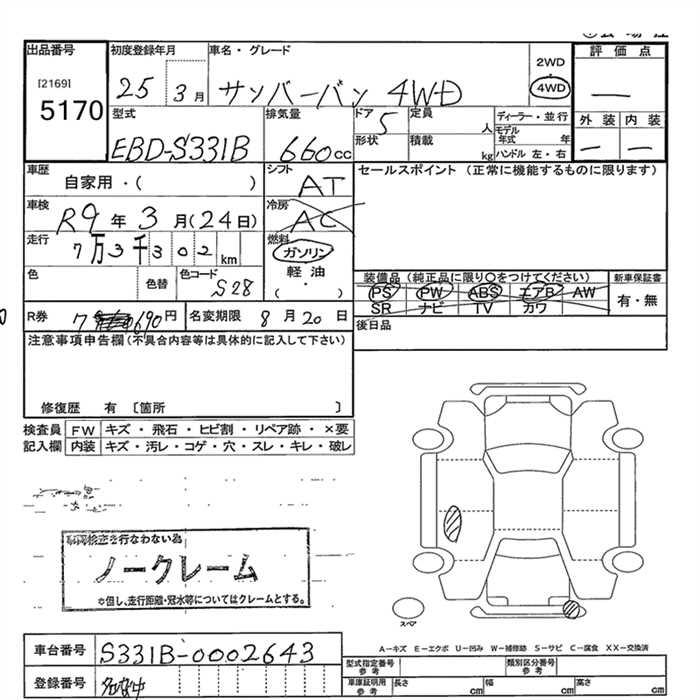 出品番号
[2169]
5170
初度登録年月
25 3月
車名・グレード
サンバーバン 4WD
2WD
4WD
評価点
―
外装 内装
― ―
型式
EBD-S331B
排気量
660cc
ドア
5
形状
定員
人
積載
kg
ディーラー・並行
モデル年式 年
ハンドル 左・右
車歴
自家用・( )
シフト
AT
セールスポイント (正常に機能するものに限ります)
車検
R9年3月(24日)
冷房
AC
走行
7万3千302km
燃料
ガソリン
軽油
( ・ )
色
色替
色コード
S28
装備品(純正品に限り○をつけてください)
PS PW ABS エアB AW
SR ナビ TV カワ
新車保証書
有・無
R券
7 690円
名変期限
8月20日
後日品
注意事項申告欄(不具合内容等は具体的に記入して下さい)
修復歴 有 〔箇所 〕
検査員 FW キズ・飛石・ヒビ割・リペア跡・×要
記入欄 内装 キズ・汚レ・コゲ・穴・スレ・キレ・破レ
車両検査を行なわない為
ノークレーム
※但し、走行距離・冠水等についてはクレームとする。
スペア
A―キズ E―エクボ U―凹み W―補修跡 S―サビ C―腐食 XX―交換済
車台番号 S331B-0002643
登録番号
型式指定番号 参考
類別区分番号 参考
車庫証明用 参考
長さ cm 幅 cm 高さ cm